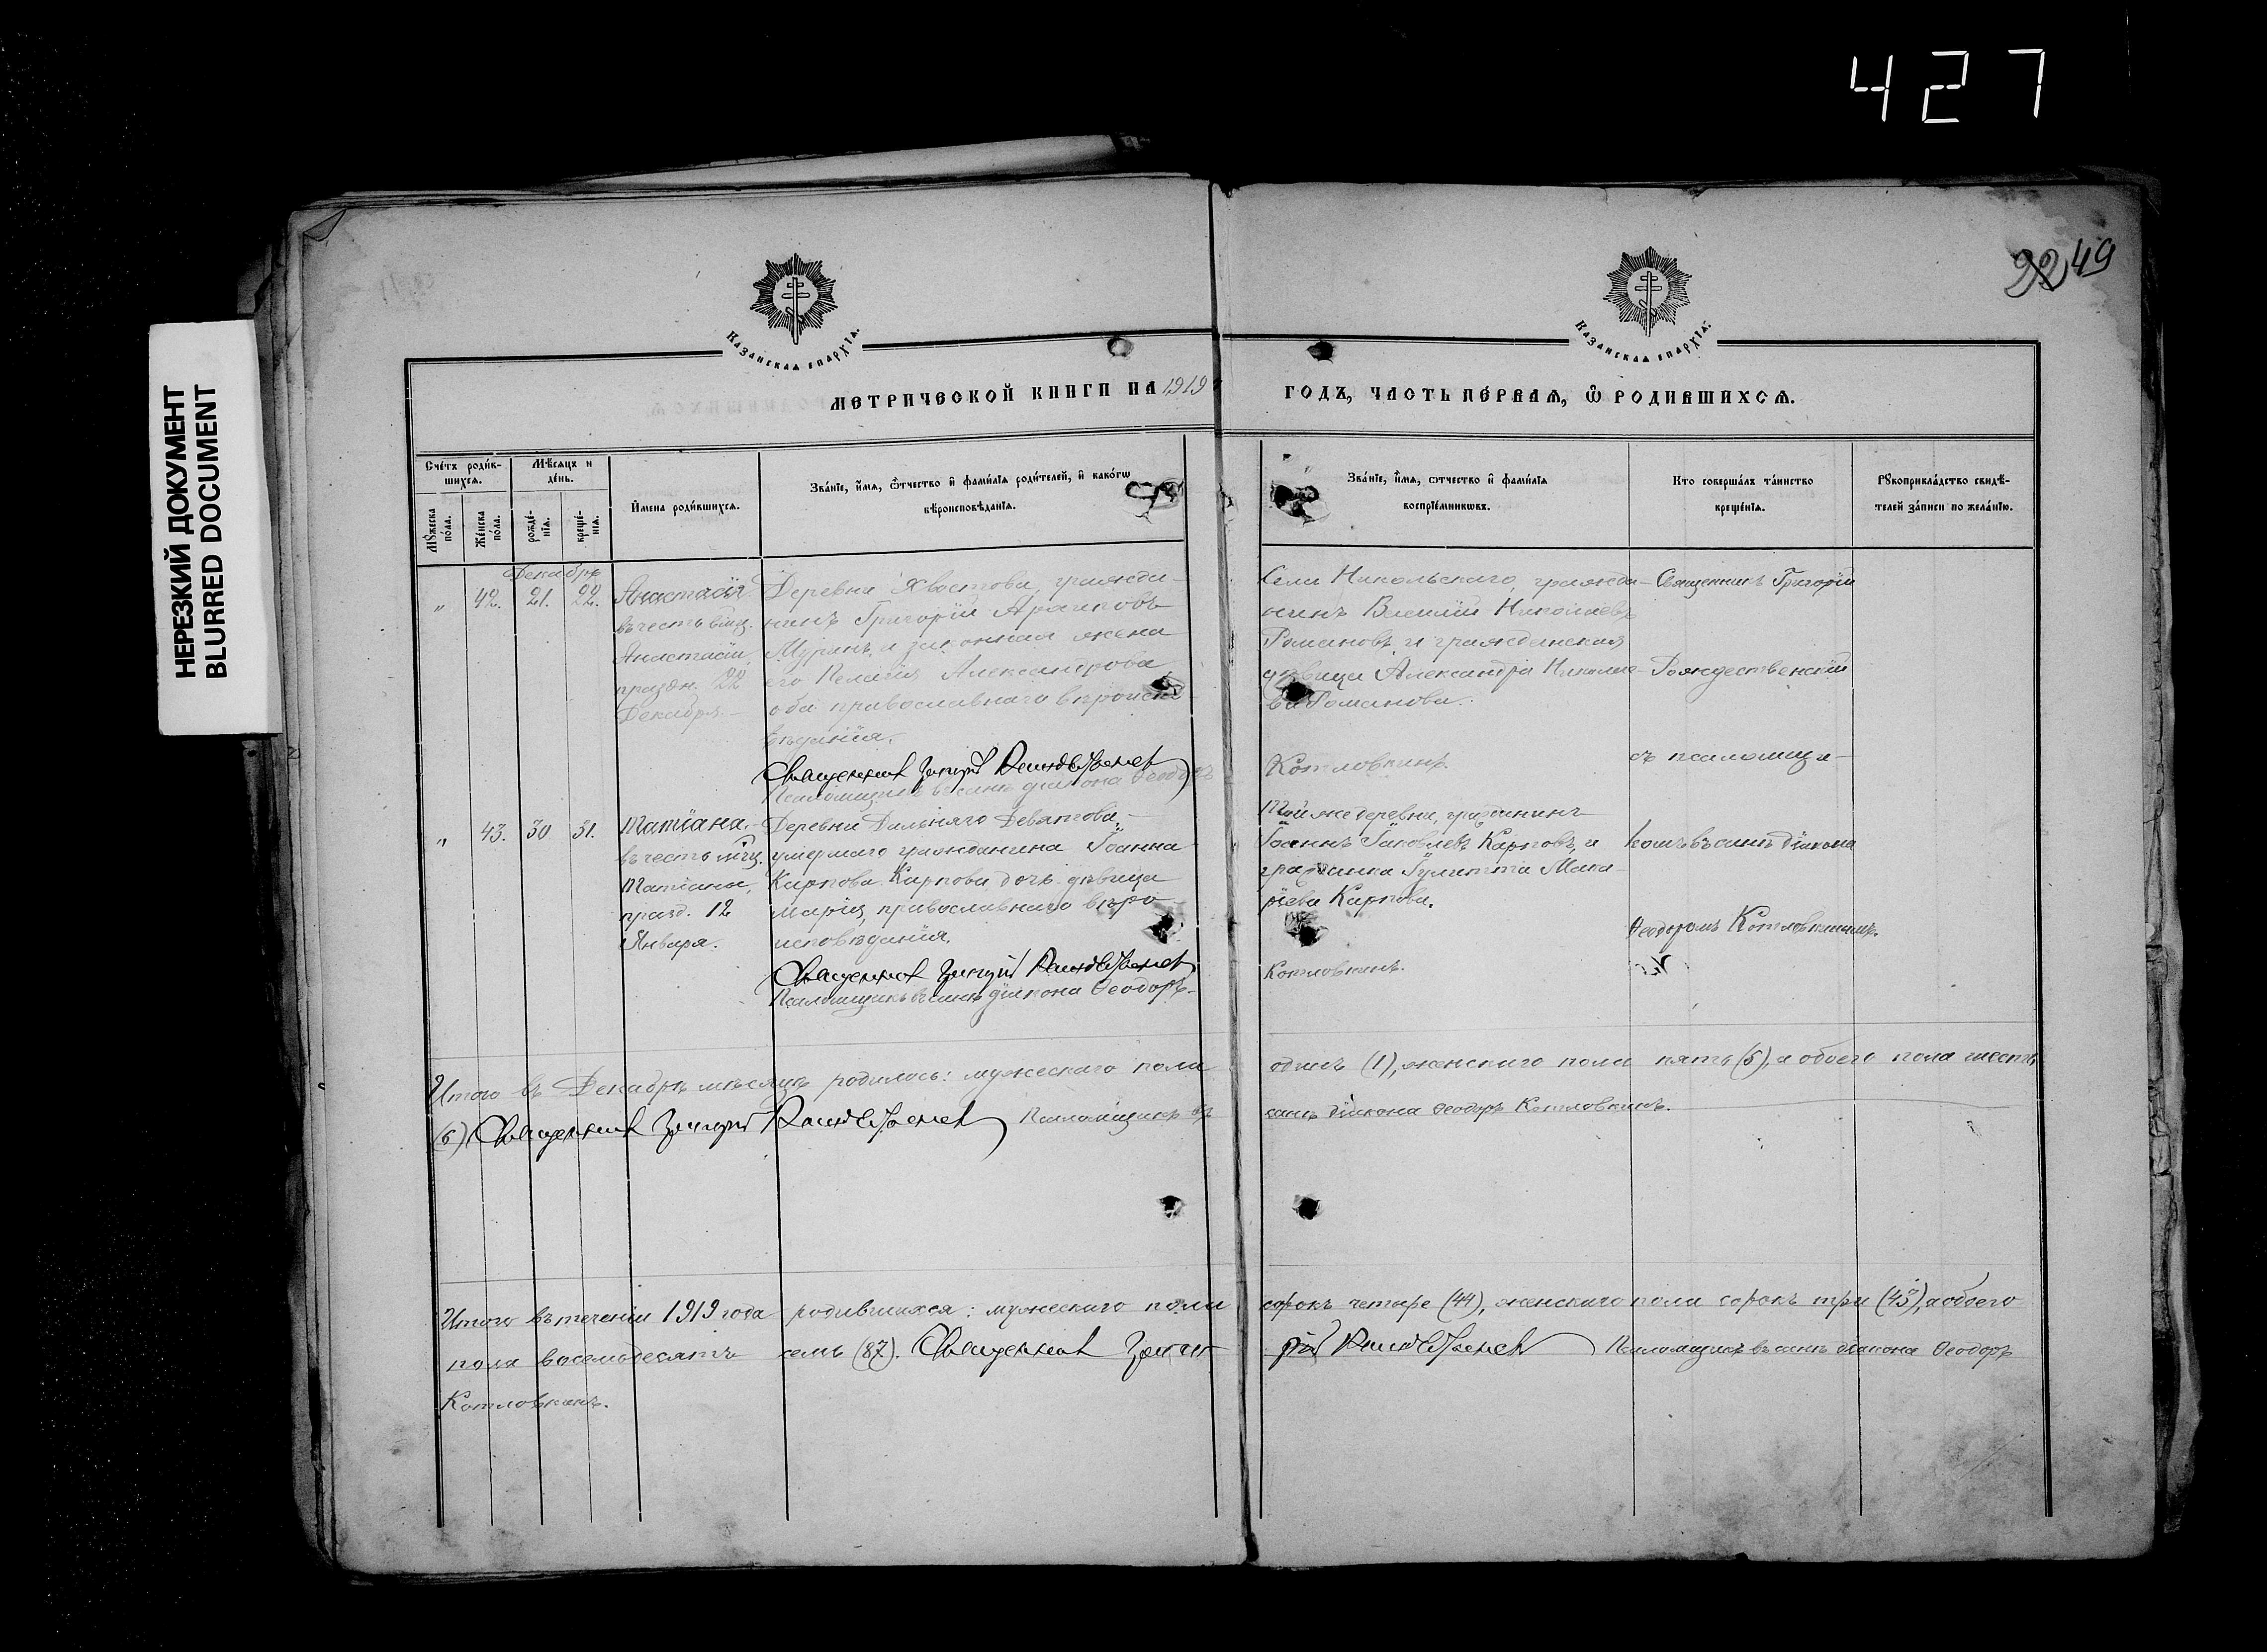 427
НЕРЕЗКИЙ ДОКУМЕНТ
BLURRED DOCUMENT
22 49
Казанская епархїа.
Казанская епархїа.
МЕТРИЧЕСКОЙ КНИГИ НА 1919
ГОДЪ, ЧАСТЬ ПЕ́РВАѦ, Ѡ҆ РОДИВШИХСѦ.
Сче́тъ роди́в-
шихсѧ.
Мѣ́сѧцъ и
де́нь.
Мꙋ́жеска
по́ла.
Же́нска
по́ла.
рожде́-
нїѧ.
креще́-
нїѧ.
И҆мена роди́вшихсѧ.
Зва́нїе, и҆́мѧ, ѻ҆́тчество и҆ фами́лїѧ роди́телей, и҆ како́гѡ
вѣроисповѣ́данїѧ.
Зва́нїе, и҆́мѧ, ѻ҆́тчество и҆ фами́лїѧ
воспрїе́мникѡвъ.
Кто соверша́лъ та́инство
креще́нїѧ.
Рꙋкоприкла́дство свидѣ́-
телей за́писи по жела́нїю.
Декабрь
" 42. 21. 22.
Анастасія
въ честь вмц.
Анастасіи,
праздн. 22
Декабря.
Деревни Хвостова, гражда-
нинъ Григорій Архиповъ
Муринъ и законная жена
его Пелагія Александрова
оба православнаго вѣроиспо-
вѣданія.
Священникъ Григорій Рождественскій
Псаломщикъ въ санѣ діакона Ѳеодоръ
Села Никольскаго, гражда-
нинъ Василій Николаевъ
Романовъ и гражданская
дѣвица Александра Николае-
ва Романова.
Котловкинъ.
Священникъ Григорій
Рождественскій
съ псаломщи-
" 43. 30 31.
Татіана,
въ честь мчц.
Татіаны,
празд. 12
Января.
Деревни Дальняго Девятова,
умершаго гражданина Іоанна
Карпова Карпова дочь дѣвица
Марія, православнаго вѣро-
исповѣданія.
Священникъ Григорій Рождественскій
Псаломщикъ въ санѣ діакона Ѳеодоръ
Той же деревни, гражданинъ
Іоаннъ Іаковлевъ Карповъ, и
гражданка Іулитта Мака-
ріева Карпова.
Котловкинъ.
комъ въ санѣ діакона
Ѳеодоромъ Котловкинымъ.
Итого въ Декабрѣ мѣсяцѣ родилось: мужескаго пола
одинъ (1), женскаго пола пять (5), а обоего пола шесть
(6) Священникъ Григорій Рождественскій Псаломщикъ въ
санѣ діакона Ѳеодоръ Котловкинъ.
Итого въ теченіи 1919 года родившихся: мужескаго пола
сорокъ четыре (44), женскаго пола сорокъ три (43), а обоего
пола восемьдесятъ семь (87). Священникъ Григо
рій Рождественскій Псаломщикъ въ санѣ діакона Ѳеодоръ
Котловкинъ.